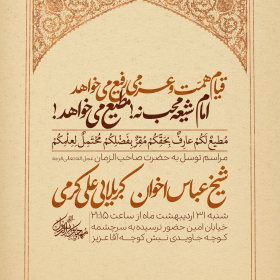 قیام همت و عزمی رفیع می خواهد
امام شیعه محب نه، مطیع می خواهد!
مُطیعٌ لَکُمْ عارِفٌ بِحَقِّکُمْ مُقِرٌّ بِفَضْلِکُمْ مُحْتَمِلٌ لِعِلْمِکُمْ
مراسم توسل به حضرت صاحب الزمان
شیخ عباس اخوان کربلائی علی کرمی
شنبه ۳۱ اردیبهشت ماه از ساعت ۲۱:۱۵
خیابان امین حضور نرسیده به سرچشمه
کوچه جاویدی نبش کوچه آقا عزیز